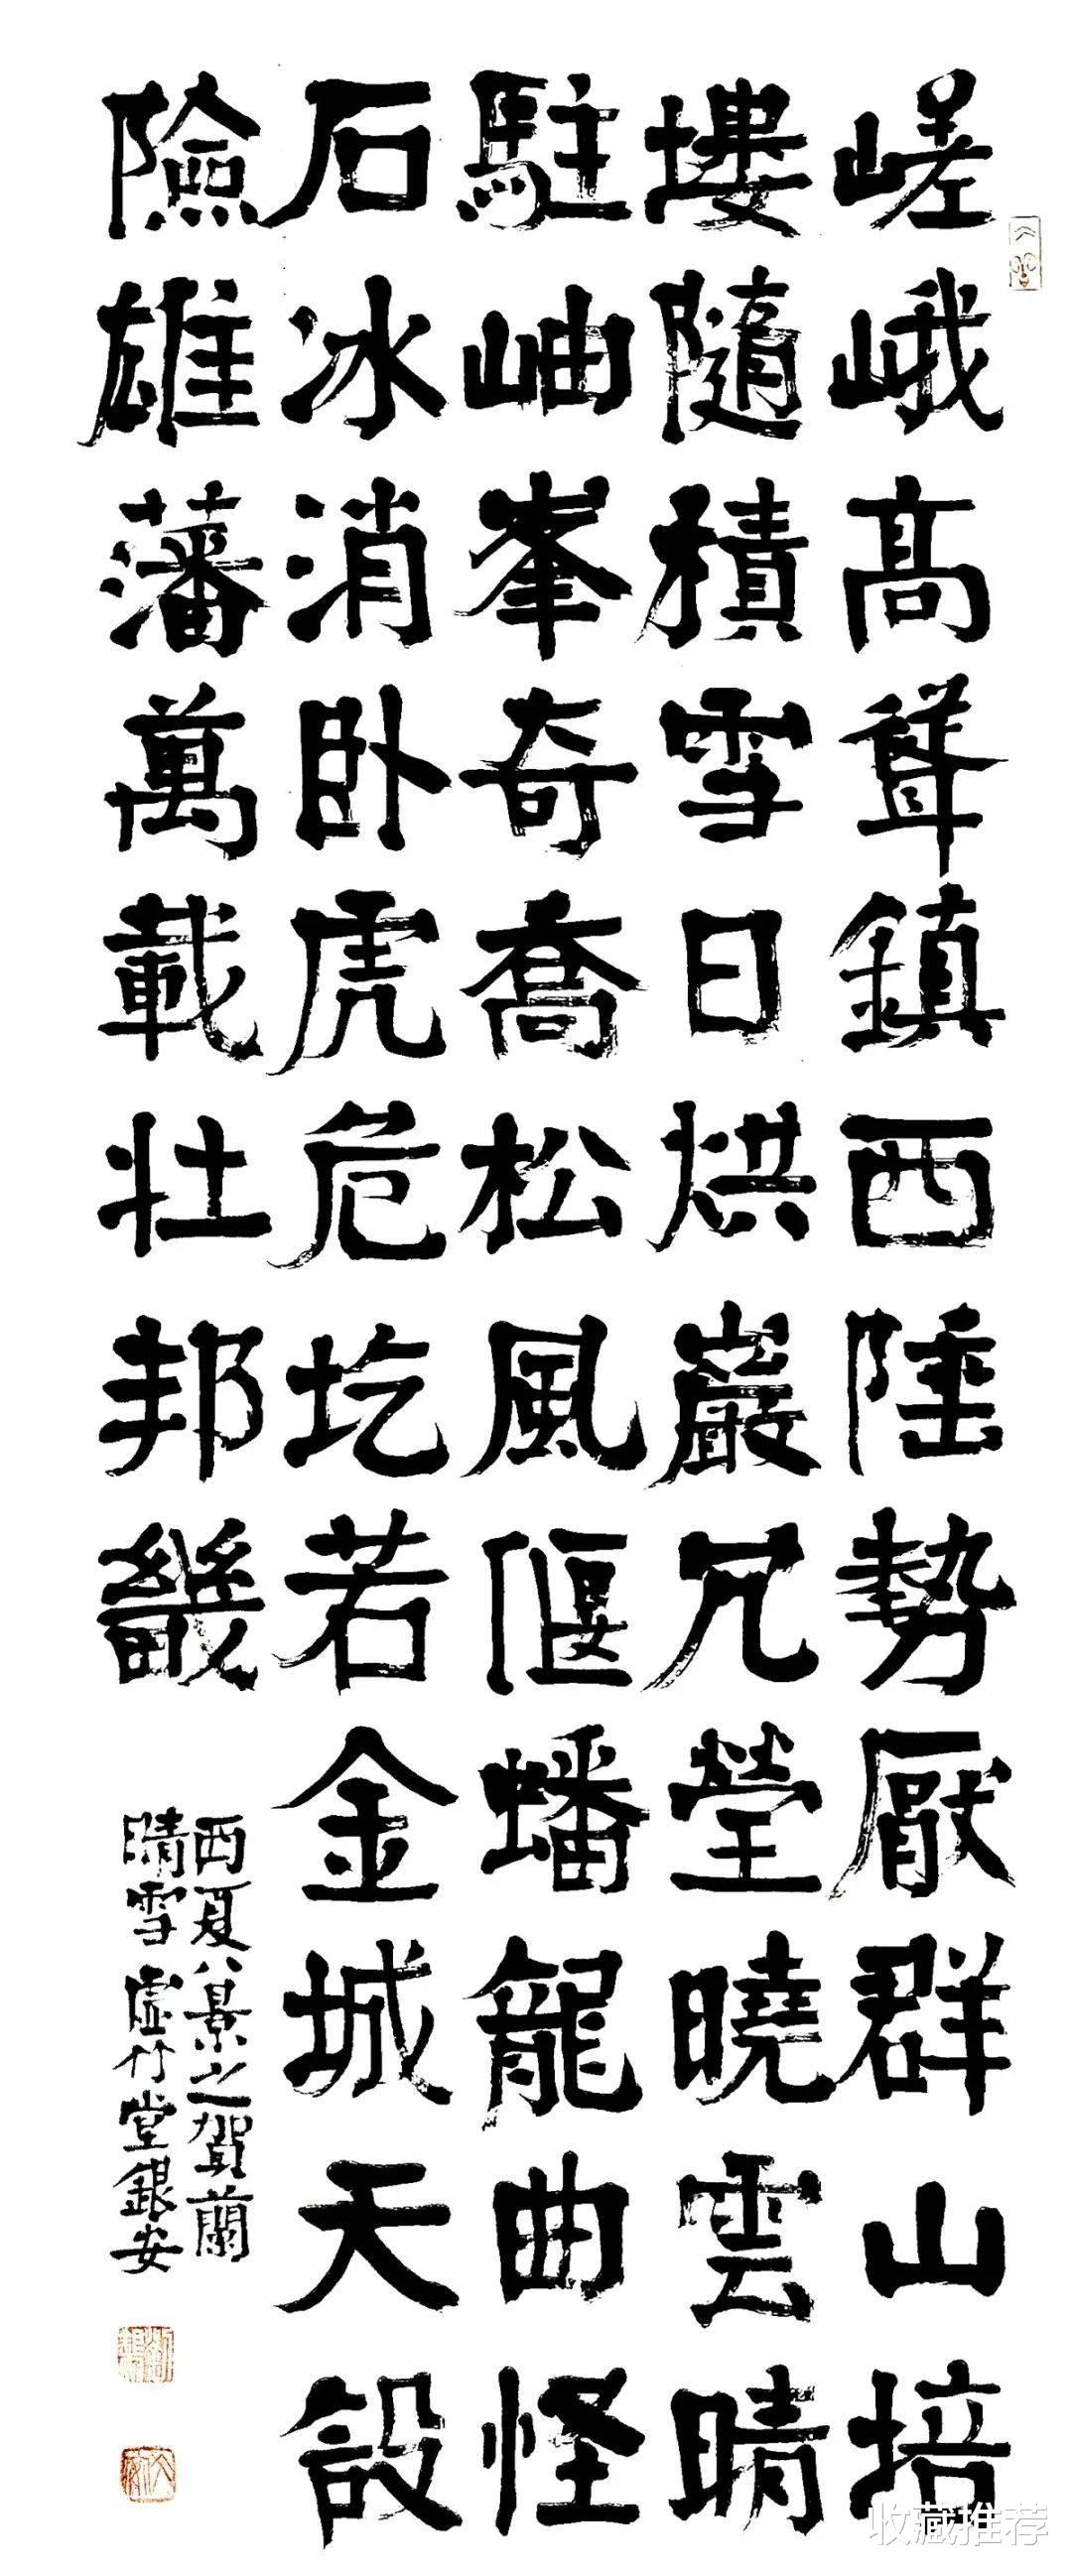 嵯峨高聳鎮西陲勢厭群山培
塿隨積雪日烘巖冗瑩曉雲晴
駐岫峯奇喬松風偃蟠龍曲怪
石冰消卧虎危圪若金城天設
險雄藩萬載壯邦畿
西夏八景之賀蘭
晴雪虛竹堂銀安
收藏推荐